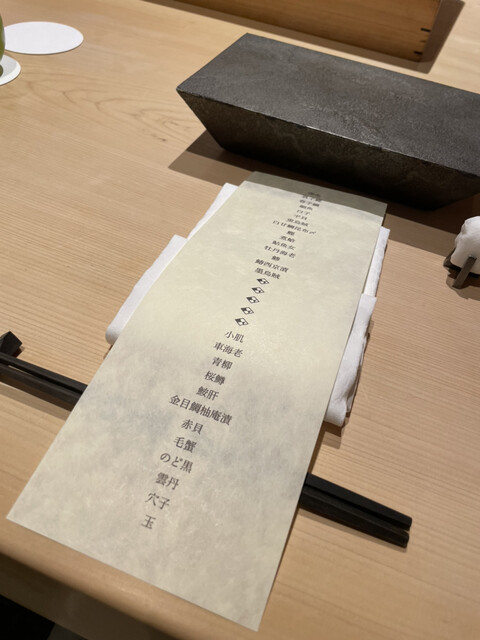 白子
白甘鯛昆布〆
煮蛤
鮎魚女
牡丹海老
鰆西京漬
墨烏賊
小肌
車海老
青柳
桜鱒
鮟肝
金目鯛柚庵漬
赤貝
毛蟹
のど黒
雲丹
穴子
玉